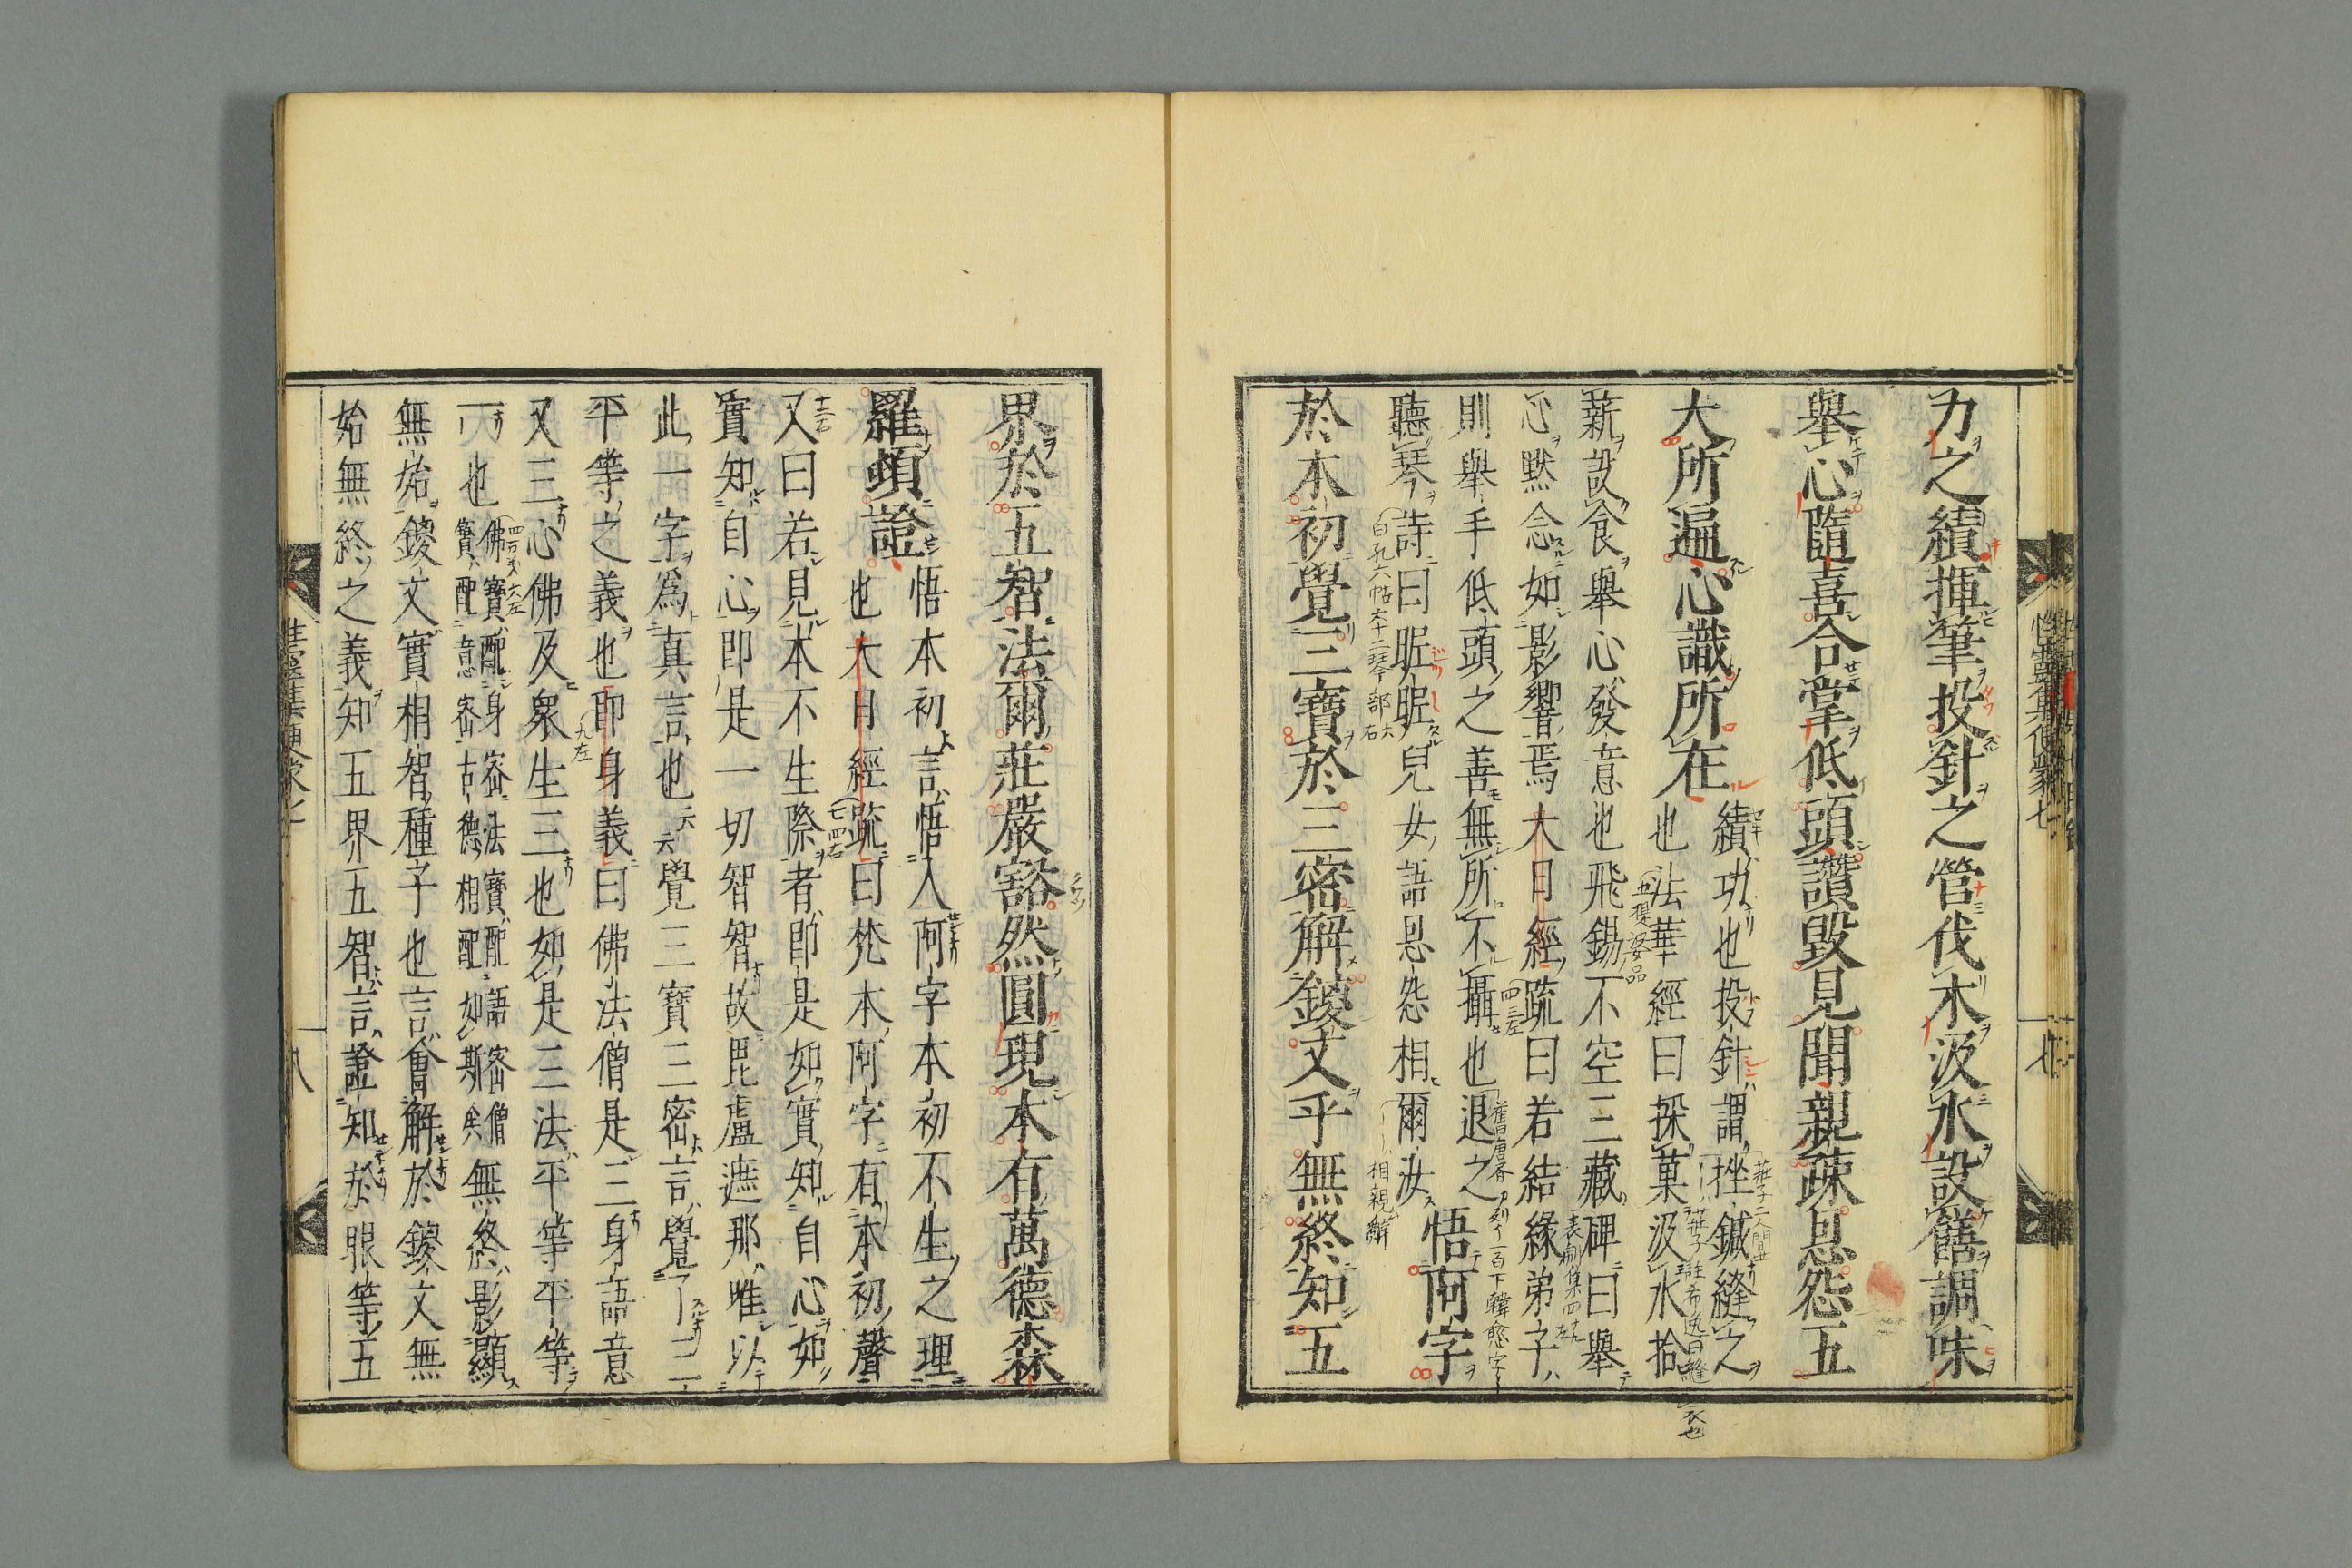 力之績揮筆投針之管伐木汲水設饍調味
擧心隨喜合掌低頭讚毀見聞親疎恩怨五
大所遍心識所在
績功也投針謂挫鍼縫之
也法華經曰採菓汲水拾
薪設食擧心發意也飛錫不空三藏碑曰擧
心默念如影響焉大日經疏曰若結緣弟子
則擧手低頭之善無所不攝也退之
聽琴詩曰昵昵兒女語恩怨相爾汝
悟阿字
於本初覺三寶於三密解鑁文乎無終知五
界於五智法爾莊嚴豁然圓現本有萬德森
羅頓證
悟本初言悟入阿字本初不生之理
也大日經疏曰梵本阿字有本初聲
又曰若見本不生際者即是如實知自心如
實知自心即是一切智智故毘盧遮那唯以
此一字爲真言也云云覺三寶三密言覺了三
平等之義也即身義曰佛法僧是三身語意
又三心佛及衆生三也如是三法平等平等
一也
佛寶配身密法寶配語密僧
寶配意密古德相配如斯矣
無終影顯
無始鑁文實相智種子也言會解於鑁文無
始無終之義知五界五智言證知於眼等五